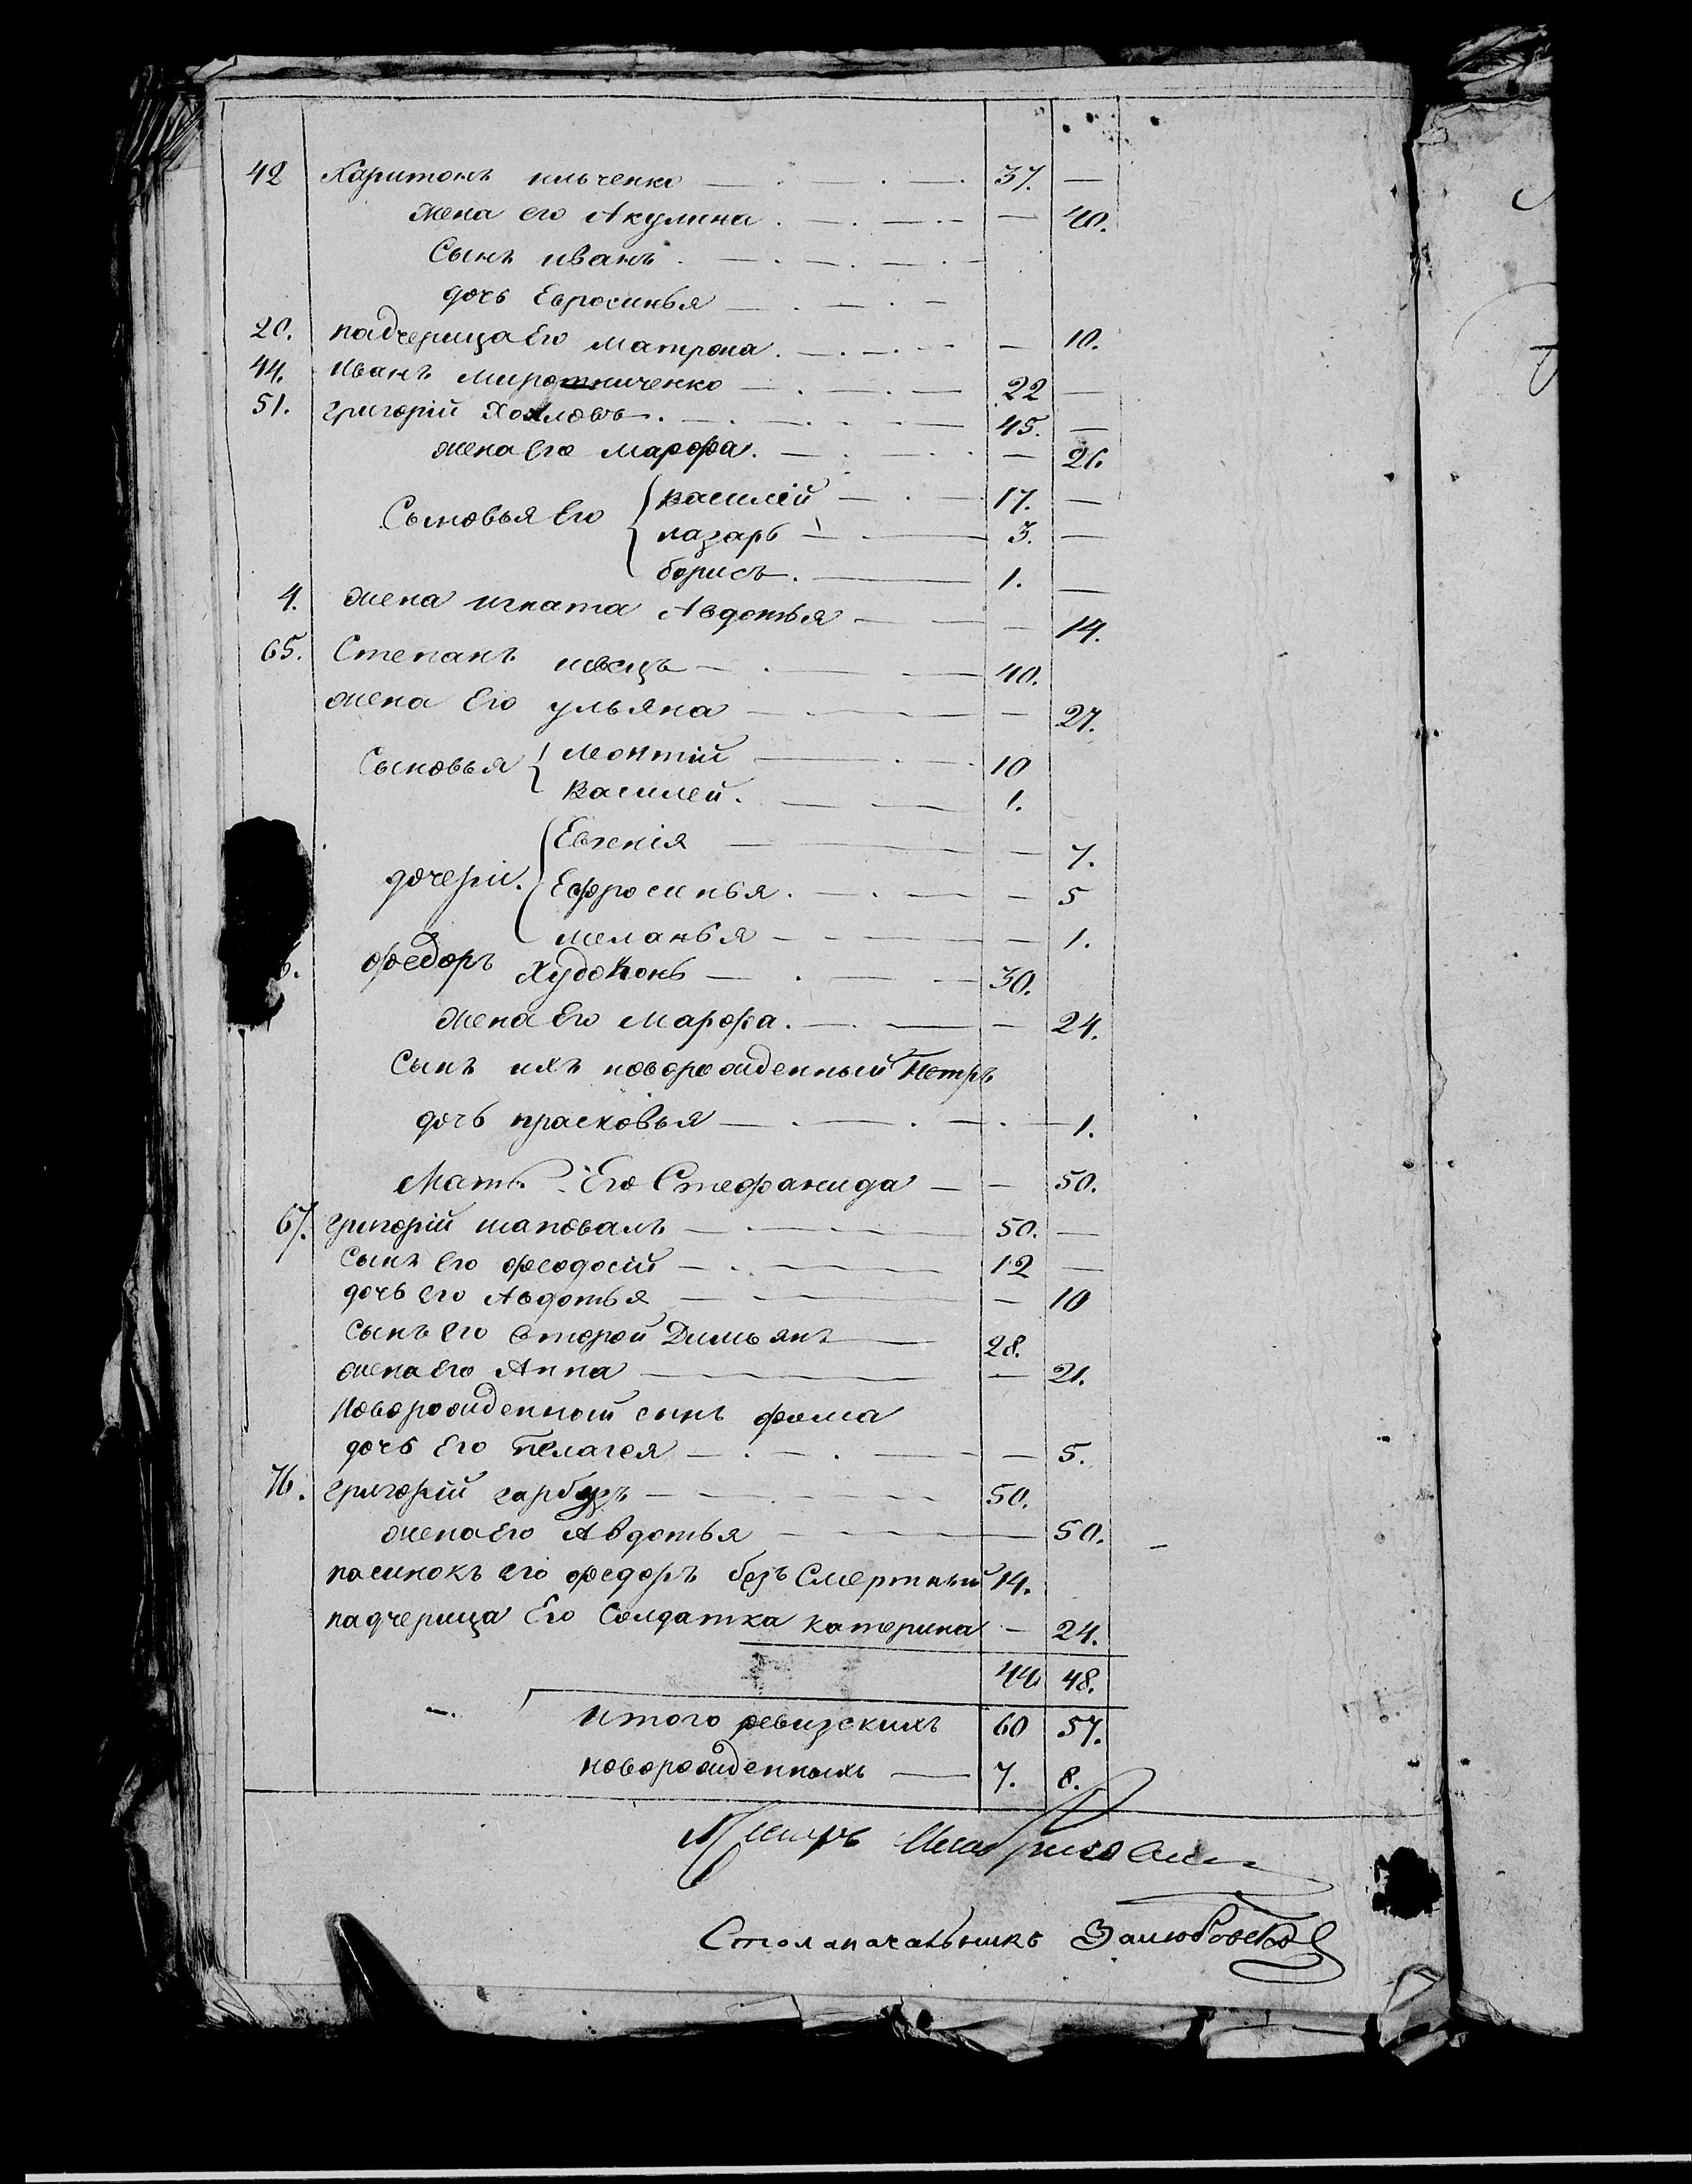 42 Харитонъ ильченко — 37. —
жена его Акулина. — 40.
Сынъ иванъ. —
дочь Евросинья —
20. падчерица Его матрона. — 10.
44. Иванъ миротниченко — 22 —
51. григорій Хохловъ. — 45. —
жена Его марфа. — 26
Сыновья Его { василій — 17. —
лазарь — 3. —
борисъ. — 1. —
4. жена игната Авдотья — 14.
65. Степанъ швецъ — 40.
жена Его ульяна — 27.
Сыновья { леонтій — 10
Василей. — 1.
дочери. { Евгенія — 7.
Ефросинья. — 5
меланья — 1.
6. федоръ Худоконь — 30.
жена Его марфа. — 24.
Сынъ ихъ новорожденный Петръ
дочь прасковья — 1.
Мать Его Стефанида — 50.
67. григорій шаповалъ — 50. —
Сынъ Его феодосій — 12 —
дочь его Авдотья — 10
Сынъ его второй Димьянъ — 28.
жена его Анна — 21.
Новорожденный сынъ фома
дочь Его Пелагея — 5.
76. григорій гарбузъ — 50.
жена Его Авдотья — 50.
пасинокъ его федоръ безъ Смертный 14.
падчерица Его Солдатка катерина — 24.
44. 48.
итого ревизскихъ 60 57.
новорожденныхъ — 7. 8.
Столаначальникъ